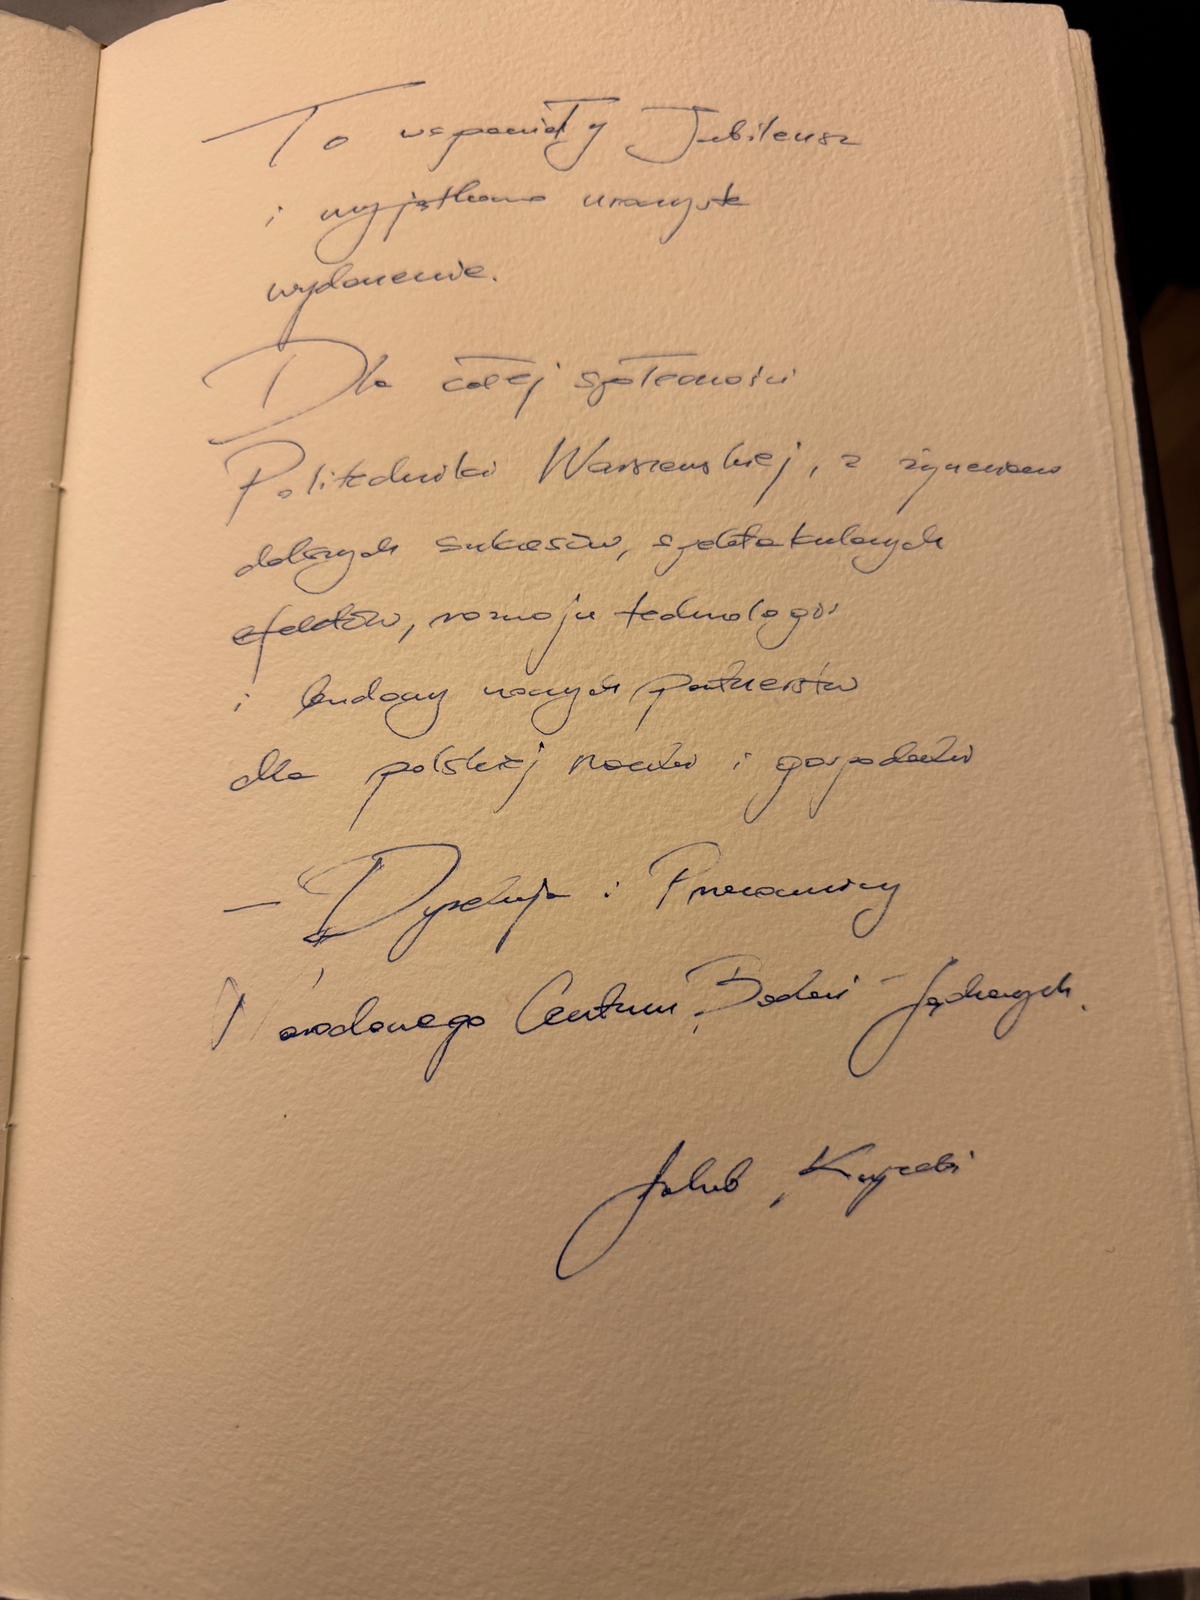 To wspaniały Jubileusz
i wyjątkowo uroczyste
wydarzenie.
Dla całej społeczności
Politechniki Warszawskiej, z życzeniami
dalszych sukcesów, spektakularnych
efektów, rozwoju technologii
i budowy nowych partnerstw
dla polskiej nauki i gospodarki
— Dyrekcja i Pracownicy
Narodowego Centrum Badań Jądrowych.
Jakub